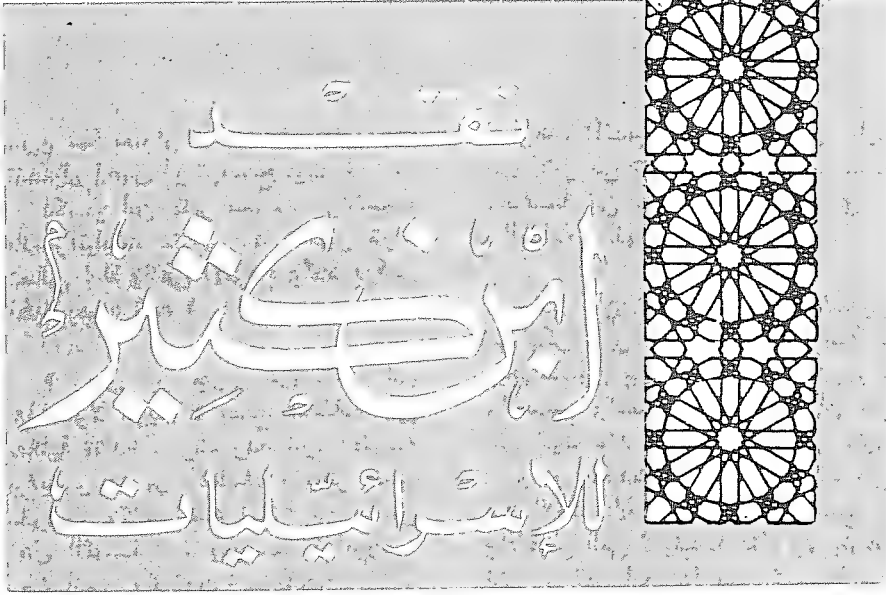 نقد
ابن كثير
للإسرائيليات